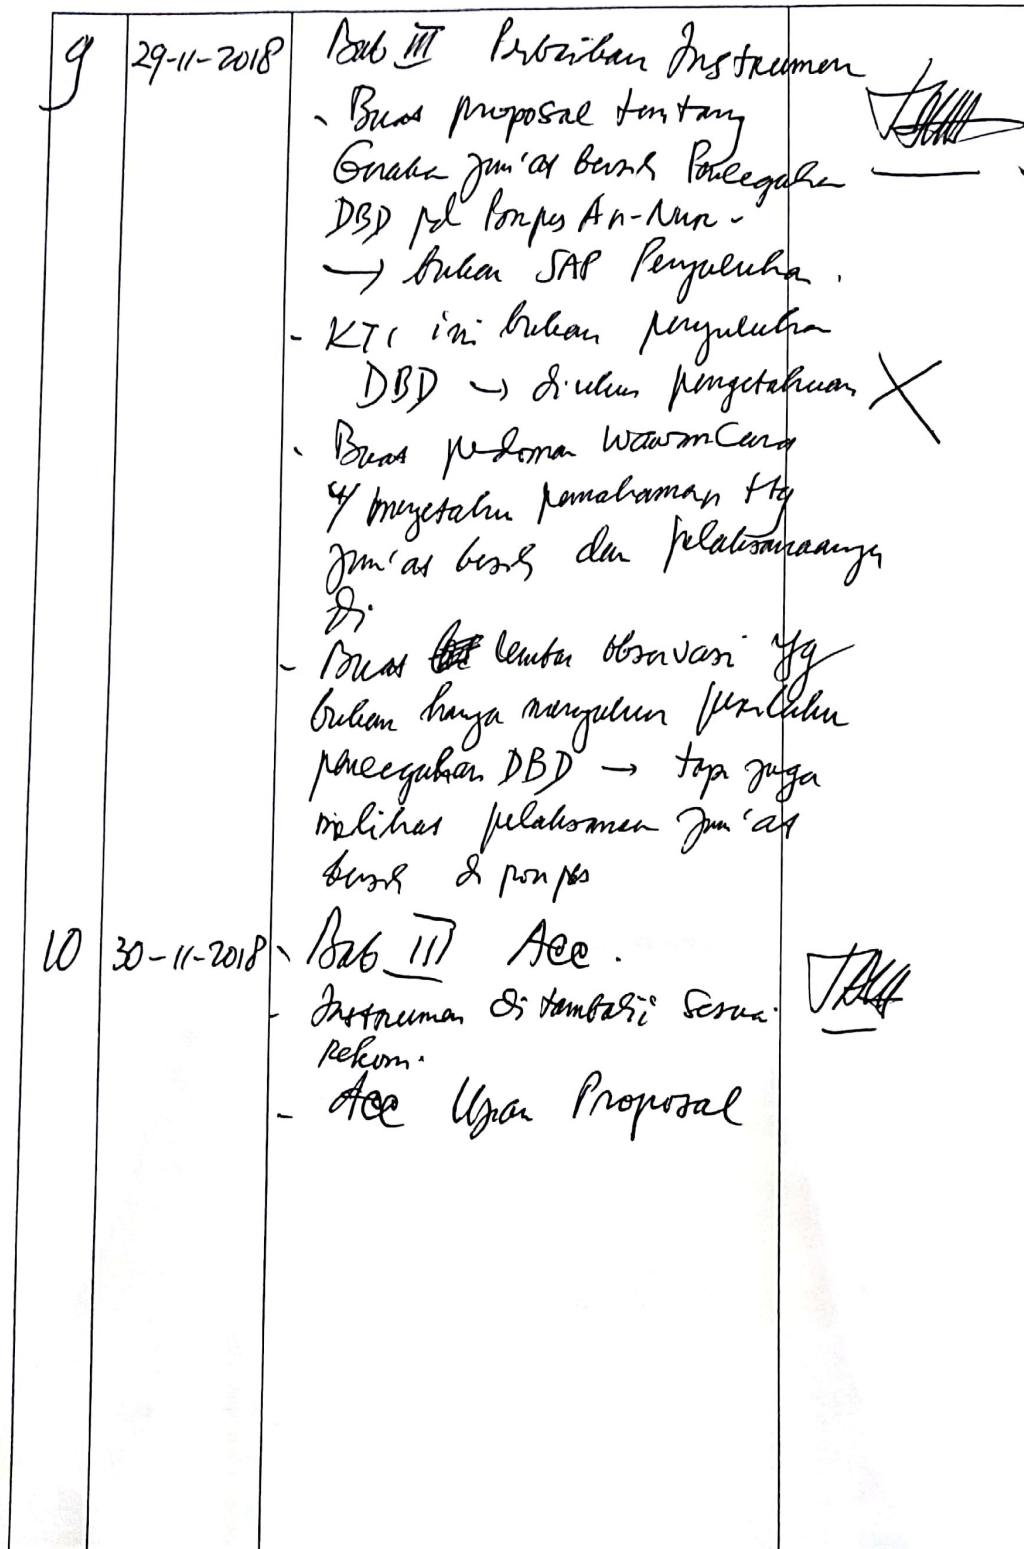 9 29-11-2018 Bab III Perbaikan Instrumen
- Buat proposal tentang
Geraka Jum'at bersih Pencegahan
DBD pd Ponpes An-Nur.
→ bukan SAP Penyuluhan.
- KTI ini bukan penyuluhan
DBD → diukur pengetahuan
- Buat pedoman wawancara
u/ mengetahui pemahaman ttg
Jum'at bersih dan pelaksanaannya
di
- Buat lembar observasi yg
bukan hanya mengukur perilaku
pencegahan DBD → tapi juga
melihat pelaksanaan Jum'at
bersih di ponpes
10 30-11-2018 - Bab III Acc.
- Instrumen ditambahi sesuai
rekom.
- Acc Ujian Proposal